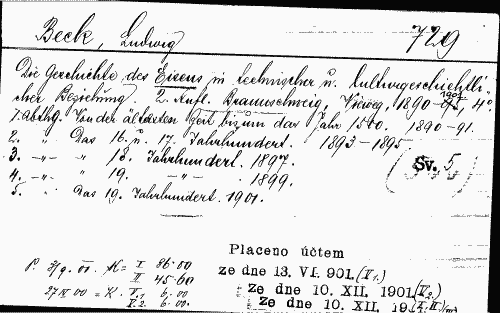 Beck, Ludwig 7209
Die Geschichte des Eisens in technischer u. kulturgeschichtli-
cher Beziehung. 2. Aufl. Braunschweig, Vieweg, 1890-95, 4°
1901
1. abthg. Von der ältesten Zeit bis um das Jahr 1500. 1890-91.
2. " Das 16. u. 17. Jahrhundert. 1893-1895
3. -"- " 18. Jahrhundert. 1897.
4. -"- " 19. -"- . 1899.
5. " Das 19. Jahrhundert. 1901.
(Sv. 5)
Placeno účtem
P. 31/9. 01. K = I 86·00
ze dne 13. VI. 901. (V1.)
II 45·60
ze dne 10. XII. 1901 (V2.)
27 IV 00 = K. V.1 6·00
ze dne 10. XII. 19
V.2. 6·00